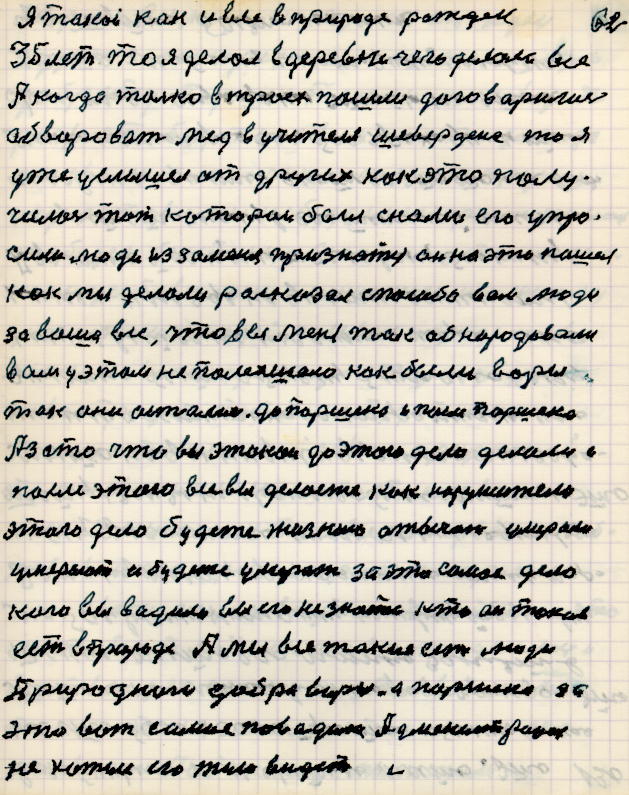 Я такой как и все в природе рожден 62
35 лет то я делал в деревни чего делали все
А когда толко в троех пошли договарилися
абвароват мед в учителя шевердена то я
уже услышел от других как это полу-
чилося тот каторай бал снами его упро-
сили люди из заменя признатся он на это пошел
как мы делали расказал спасиба вам люди
за ваша все, что вы меня так абнародавали
вам у этом не помешало как были воры
так они астались. до паршека и посли паршека
Аза то что вы этакои до этого дело делали и
посли этого все вы делаете как нарушители
этого дело будете жизнию отвечат умирали
умерают и будете умират за это самае дело
кого вы вадили вы его незнаете кто он такой
ест в природе А мы все такие ест люди
Природнаго даброва воры. а паршека за
это вот самае повадила Администрация
не хотели его тело видет